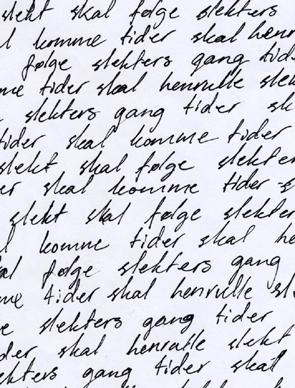 slekt skal følge slekters
komme tider skal henr
følge slekters gang tid
me tider skal henrulle slek
slekters gang tider sk
tider skal komme tider
slekt skal følge slekter
er skal komme tider s
slekt skal følge slekter
l komme tider skal he
al følge slekters gang
me tider skal henrulle sl
e slekters gang tider
der skal henrulle slekt
ekters gang tider skal